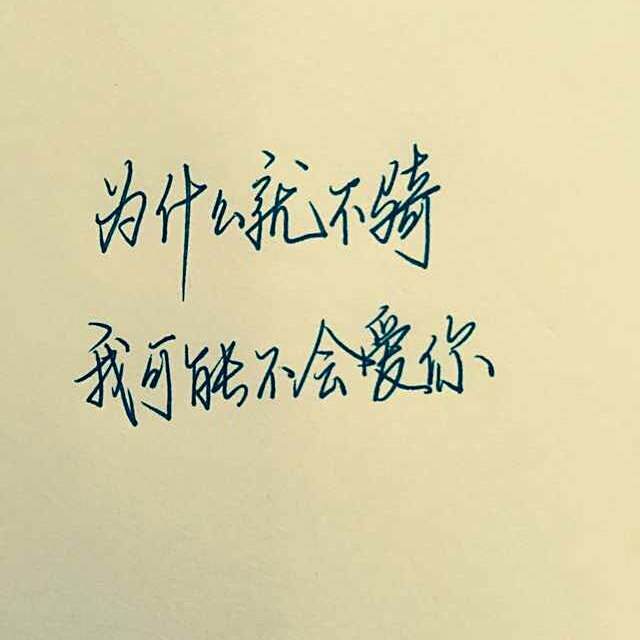 为什么就不骑
我可能不会爱你